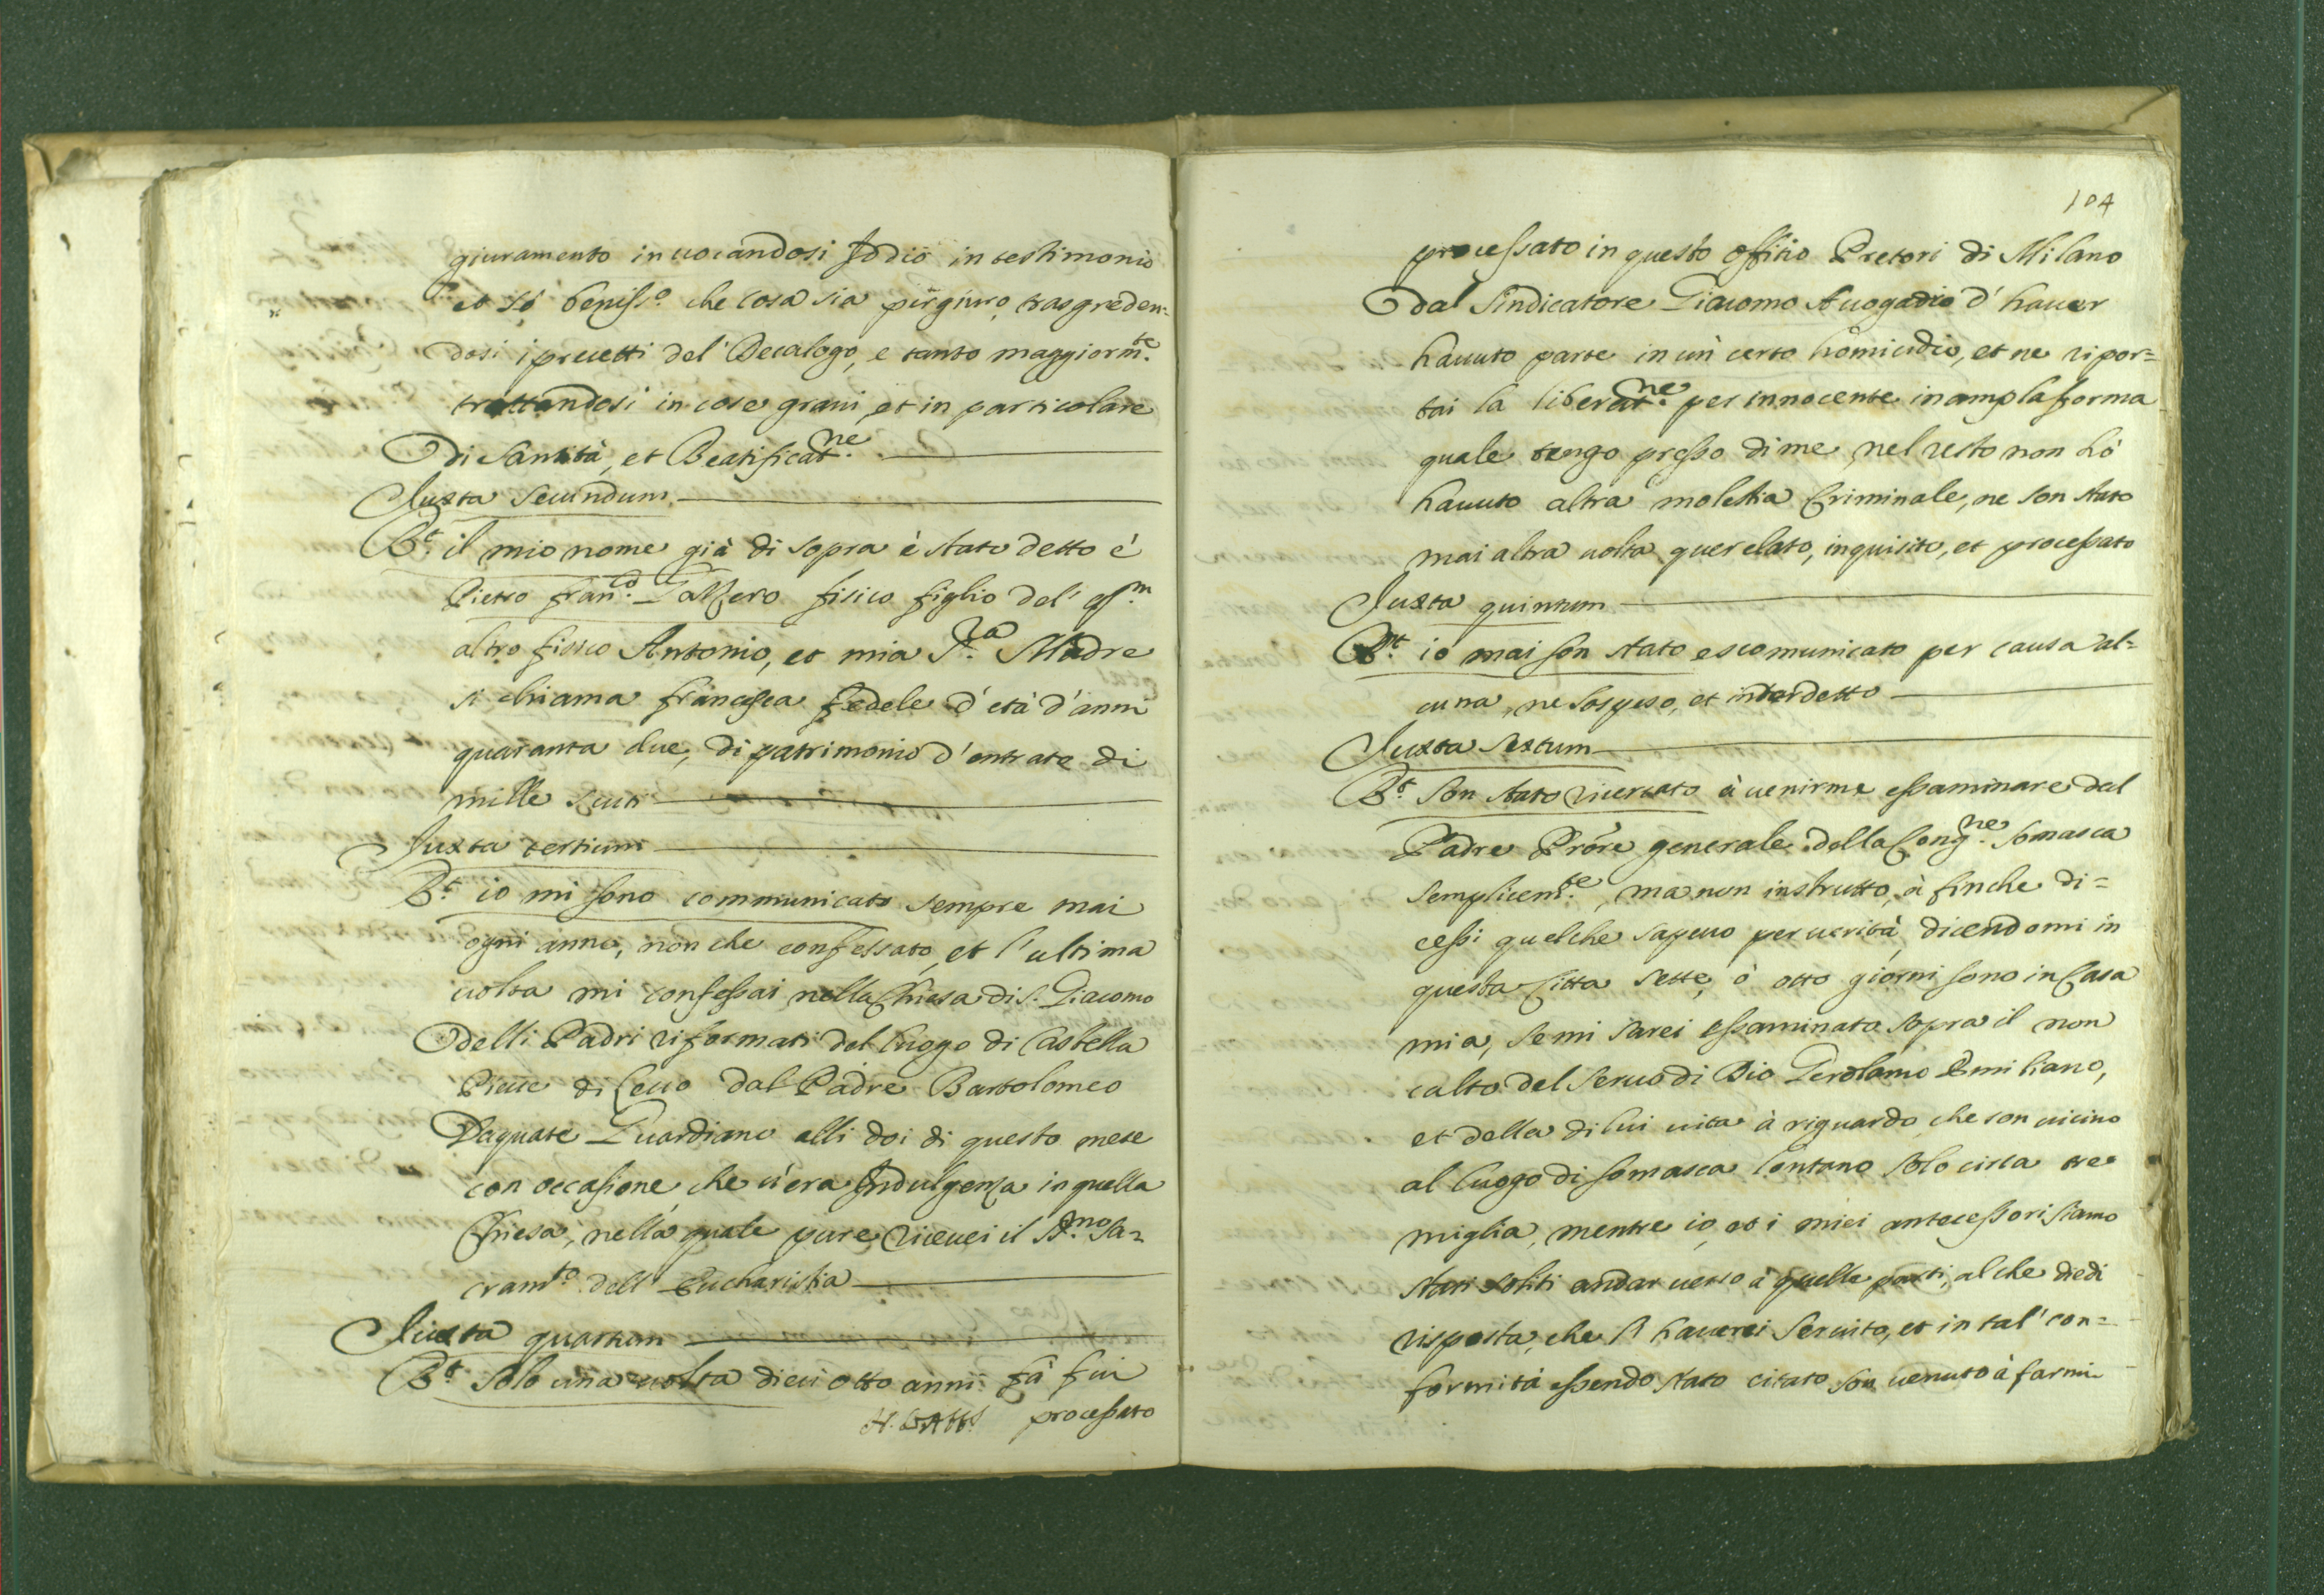 giuramento inuocandosi Iddio in testimonio
et sò beniss.o che cosa sia pergiuro, trasgreden=
dosi i precetti del' Decalogo, e tanto maggiorm.te
trattandosi in cose graui, et in particolare
di Santità, et Beatificat.ne
Iuxta secundum
R.t il mio nome già di sopra è stato detto è
Pietro Fran.co fisico figlio del' q.m
altro fisico Antonio, et mia S.ra Madre
si chiama Francesca Fedele d'età d'anni
quaranta due, di patrimonio d'entrate di
mille scuti
Iuxta tertium
R.t io mi sono communicato sempre mai
ogni anno, non che confessato, et l'ultima
uolta mi confessai nella Chiesa di S. Giacomo
delli Padri riformati del luogo di Castello
Pieue di Lecco dal Padre Bartolomeo
Guardiano alli doi di questo mese
con occasione che u'era Indulgenza in quella
Chiesa, nella quale pure riceuei il S.mo Sa=
cram.to dell' Eucharistia
Iuxta quartum
R.t solo una uolta dieci otto anni fà fui
processato
104
processato in questo offitio Pretori di Milano
dal Sindicatore Giacomo Auogadro d' hauer
hauuto parte in un' certo homicidio, et ne ripor=
tai la liberat.ne per innocente in ampla forma
quale tengo presso di me, nel resto non hò
hauuto altra molestia Criminale, ne son stato
mai altra uolta querelato, inquisito, et processato
Iuxta quintum
R.t io mai son stato escomunicato per causa al=
cuna, ne sospeso, et interdetto
Iuxta sextum
R.t son stato ricercato à uenirme essaminare dal
Padre Prõre generale della Cong.ne Somasca
semplicem.te, ma non instrutto, à finche di=
cessi quelche sapeuo per uerità, dicendomi in
questa Città sette, ò otto giorni sono in Casa
mia, se mi sarei essaminato sopra il non
culto del Seruo di Dio Gerolamo Emiliano,
et della di lui uita à riguardo, che son uicino
al luogo di Somasca lontano solo circa tre
miglia, mentre io, et i miei antecessori siamo
stati soliti andar uerso à quelle parti, al che diedi
risposta, che l' hauerei seruito, et in tal' con=
formità essendo stato citato son uenuto à farmi